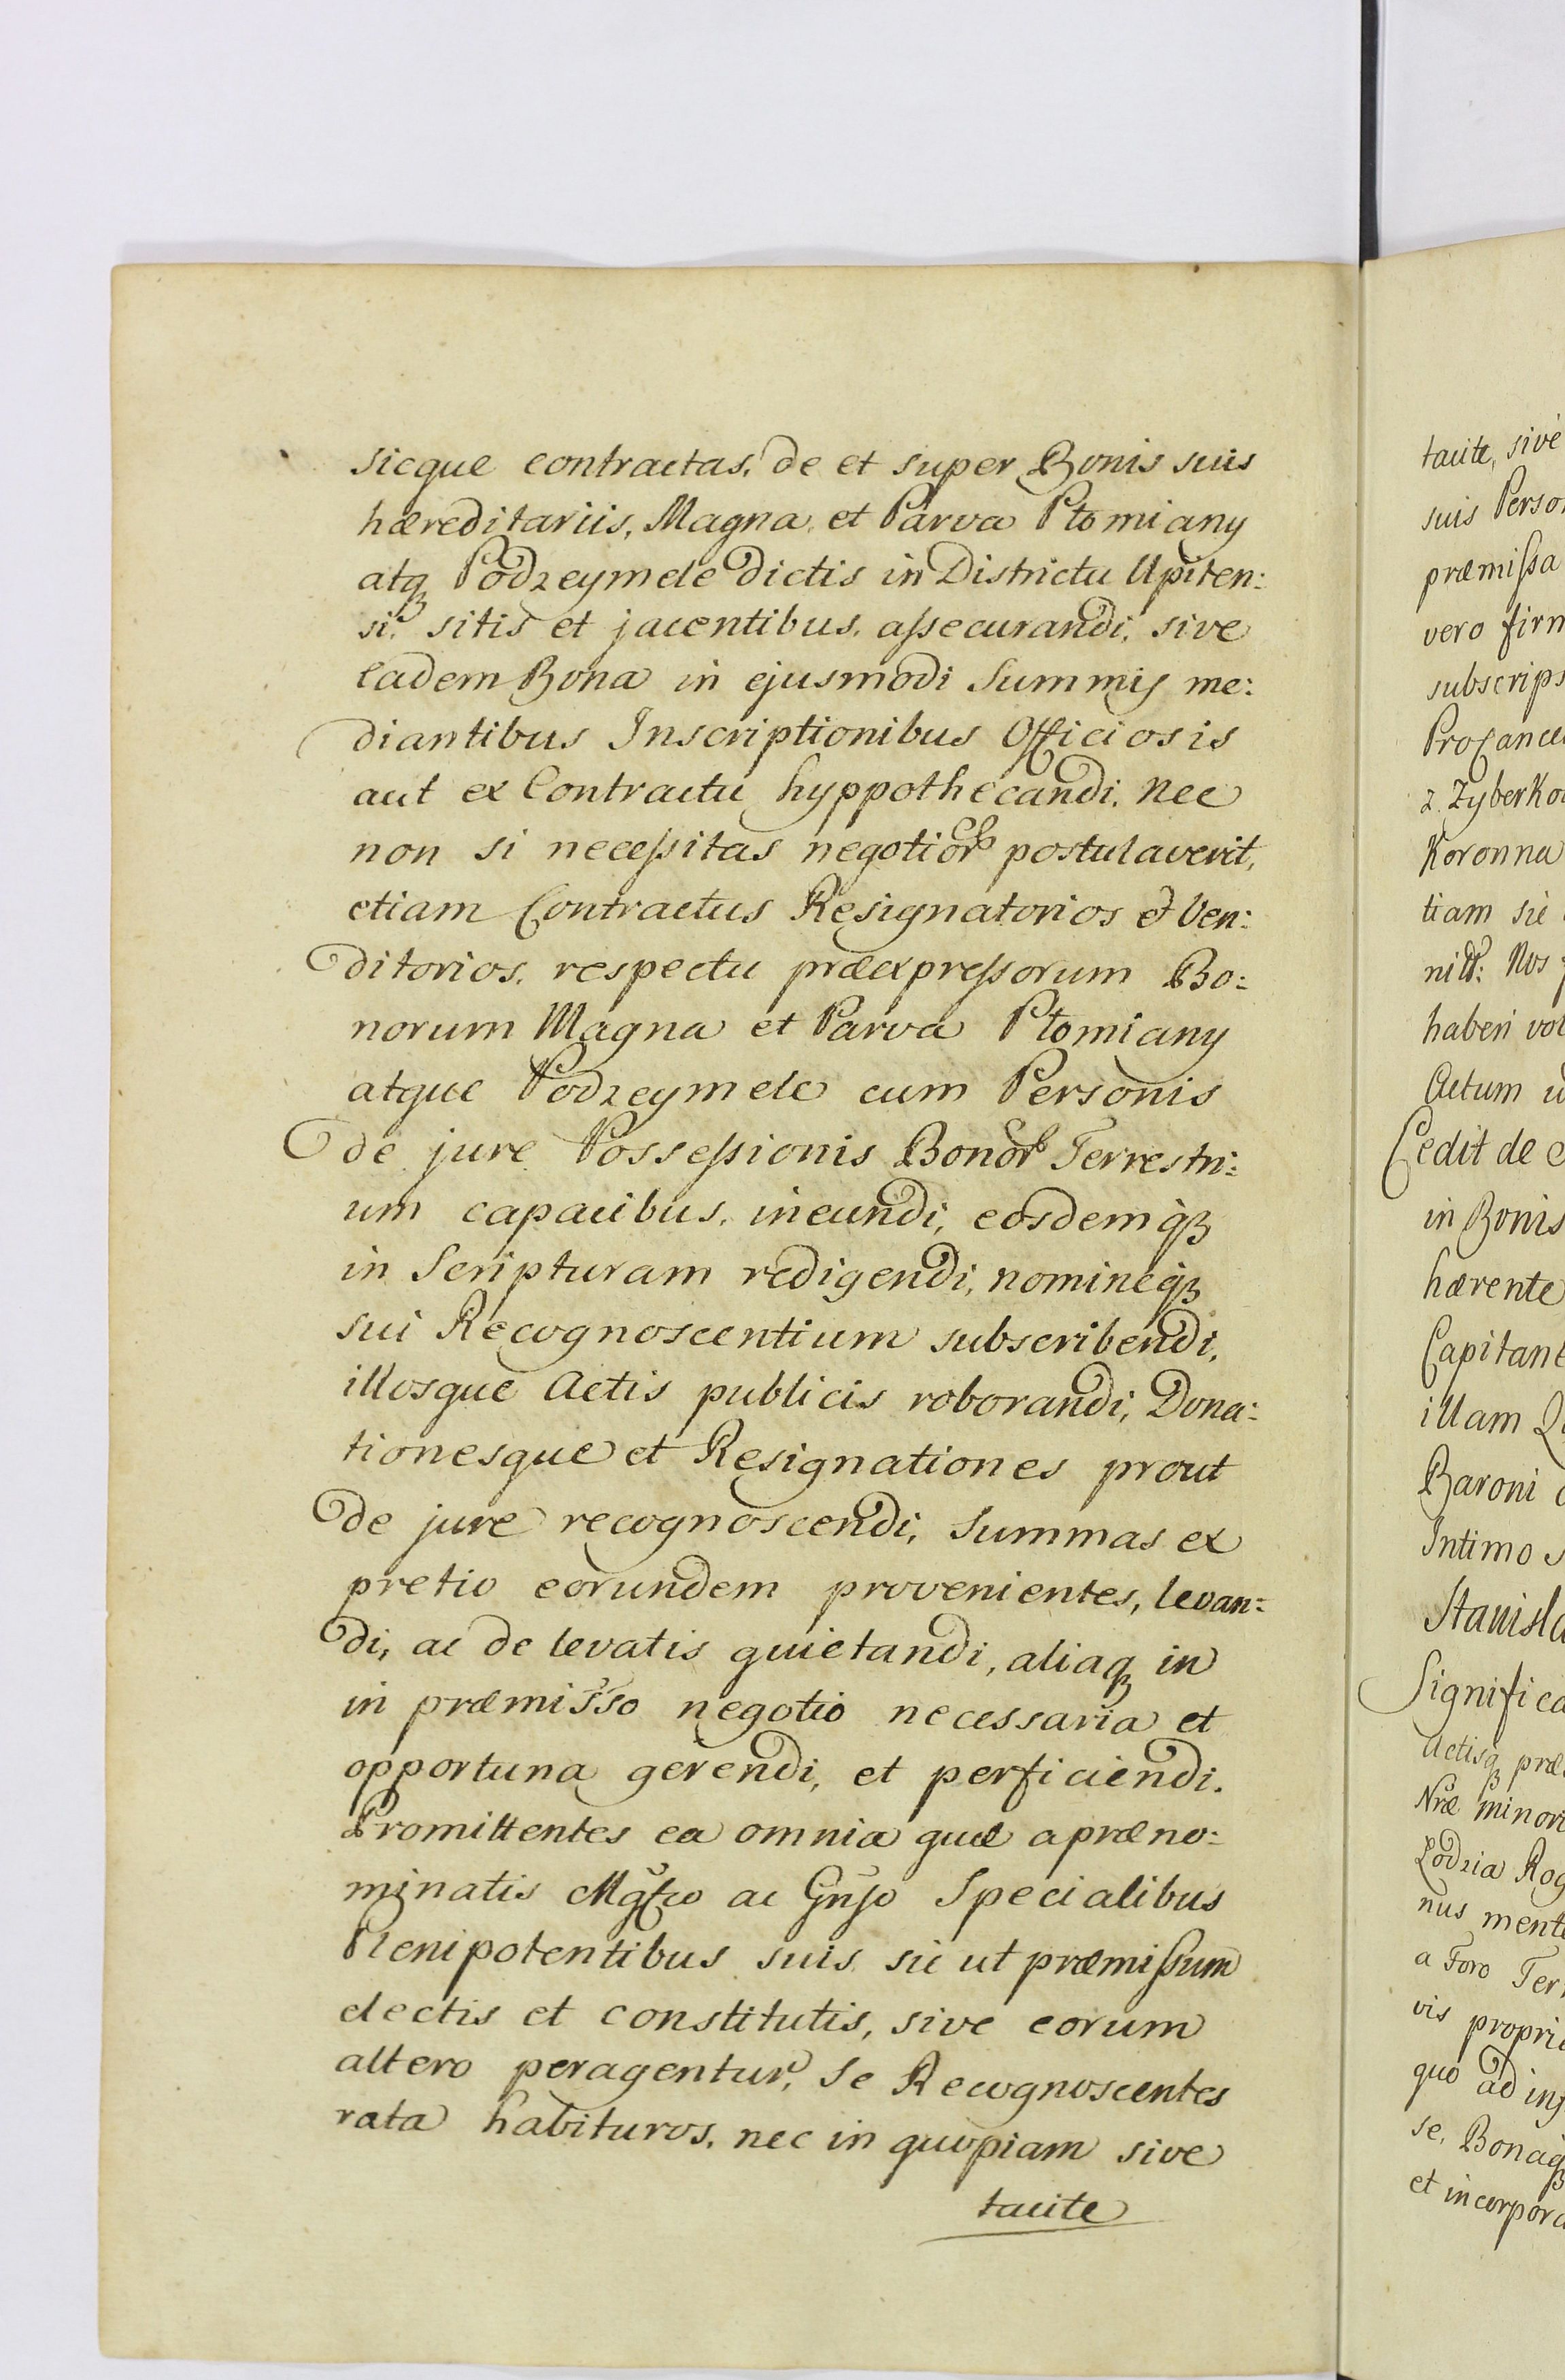 sicque contractas, de et super Bonis suis
hæreditariis, Magna et Parva Ptomiany
atq3 Podzeymele dictis in Districtu Upiten:
si, sitis et jacentibus, aſsecurandi, sive
eadem Bona in ejusmodi Summis me:
diantibus Inscriptionibus Officiosis
aut ex Contractu hyppothecandi, nec
non si neceſsitas negotior postulaverit,
etiam Contractus Resignatorios et Ven:
ditorios, respectu præexpreſsorum Bo:
norum Magna et Parva Ptomiany
atque Podzeymele cum Personis
de jure Posseſsionis Bonor Terrestri:
um capacibus, ineundi, eosdemq3
in Scripturam redigendi, nomineq3
sui Recognoscentium subscribendi,
illosque Actis publicis roborandi, Dona:
tionesque et Resignationes prout
de jure recognoscendi, Summas ex
pretio eorundem provenientes, levan:
di, ac de levatis quietandi, aliaq3 in
in præmisso negotio necessaria et
opportuna gerendi, et perficiendi.
Promittentes ea omnia quæ a præno:
minatis Mgfco ac Gnso Specialibus
Plenipotentibus suis sic ut præmiſsum
electis et constitutis, sive eorum
altero peragentur, Se Recognoscentes
rata habituros, nec in quopiam sive
tacite
tacite, sive
suis Perso
præmiſsa
vero firm
subscrips
ProCancel
z Zyberko
Koronna
tiam sic
nitt: Nos
haberi vol
Actum u
Cedit de e
in Bonis
hærente
Capitane
illam Q
Baroni
Intimo S
Stanisla
Significa
Actisq3 præ
Nræ minori
Lodzia Rog
nus mente
a Foro Ter
vis propri
quo ad inf
se, Bonaq3
et incorpora